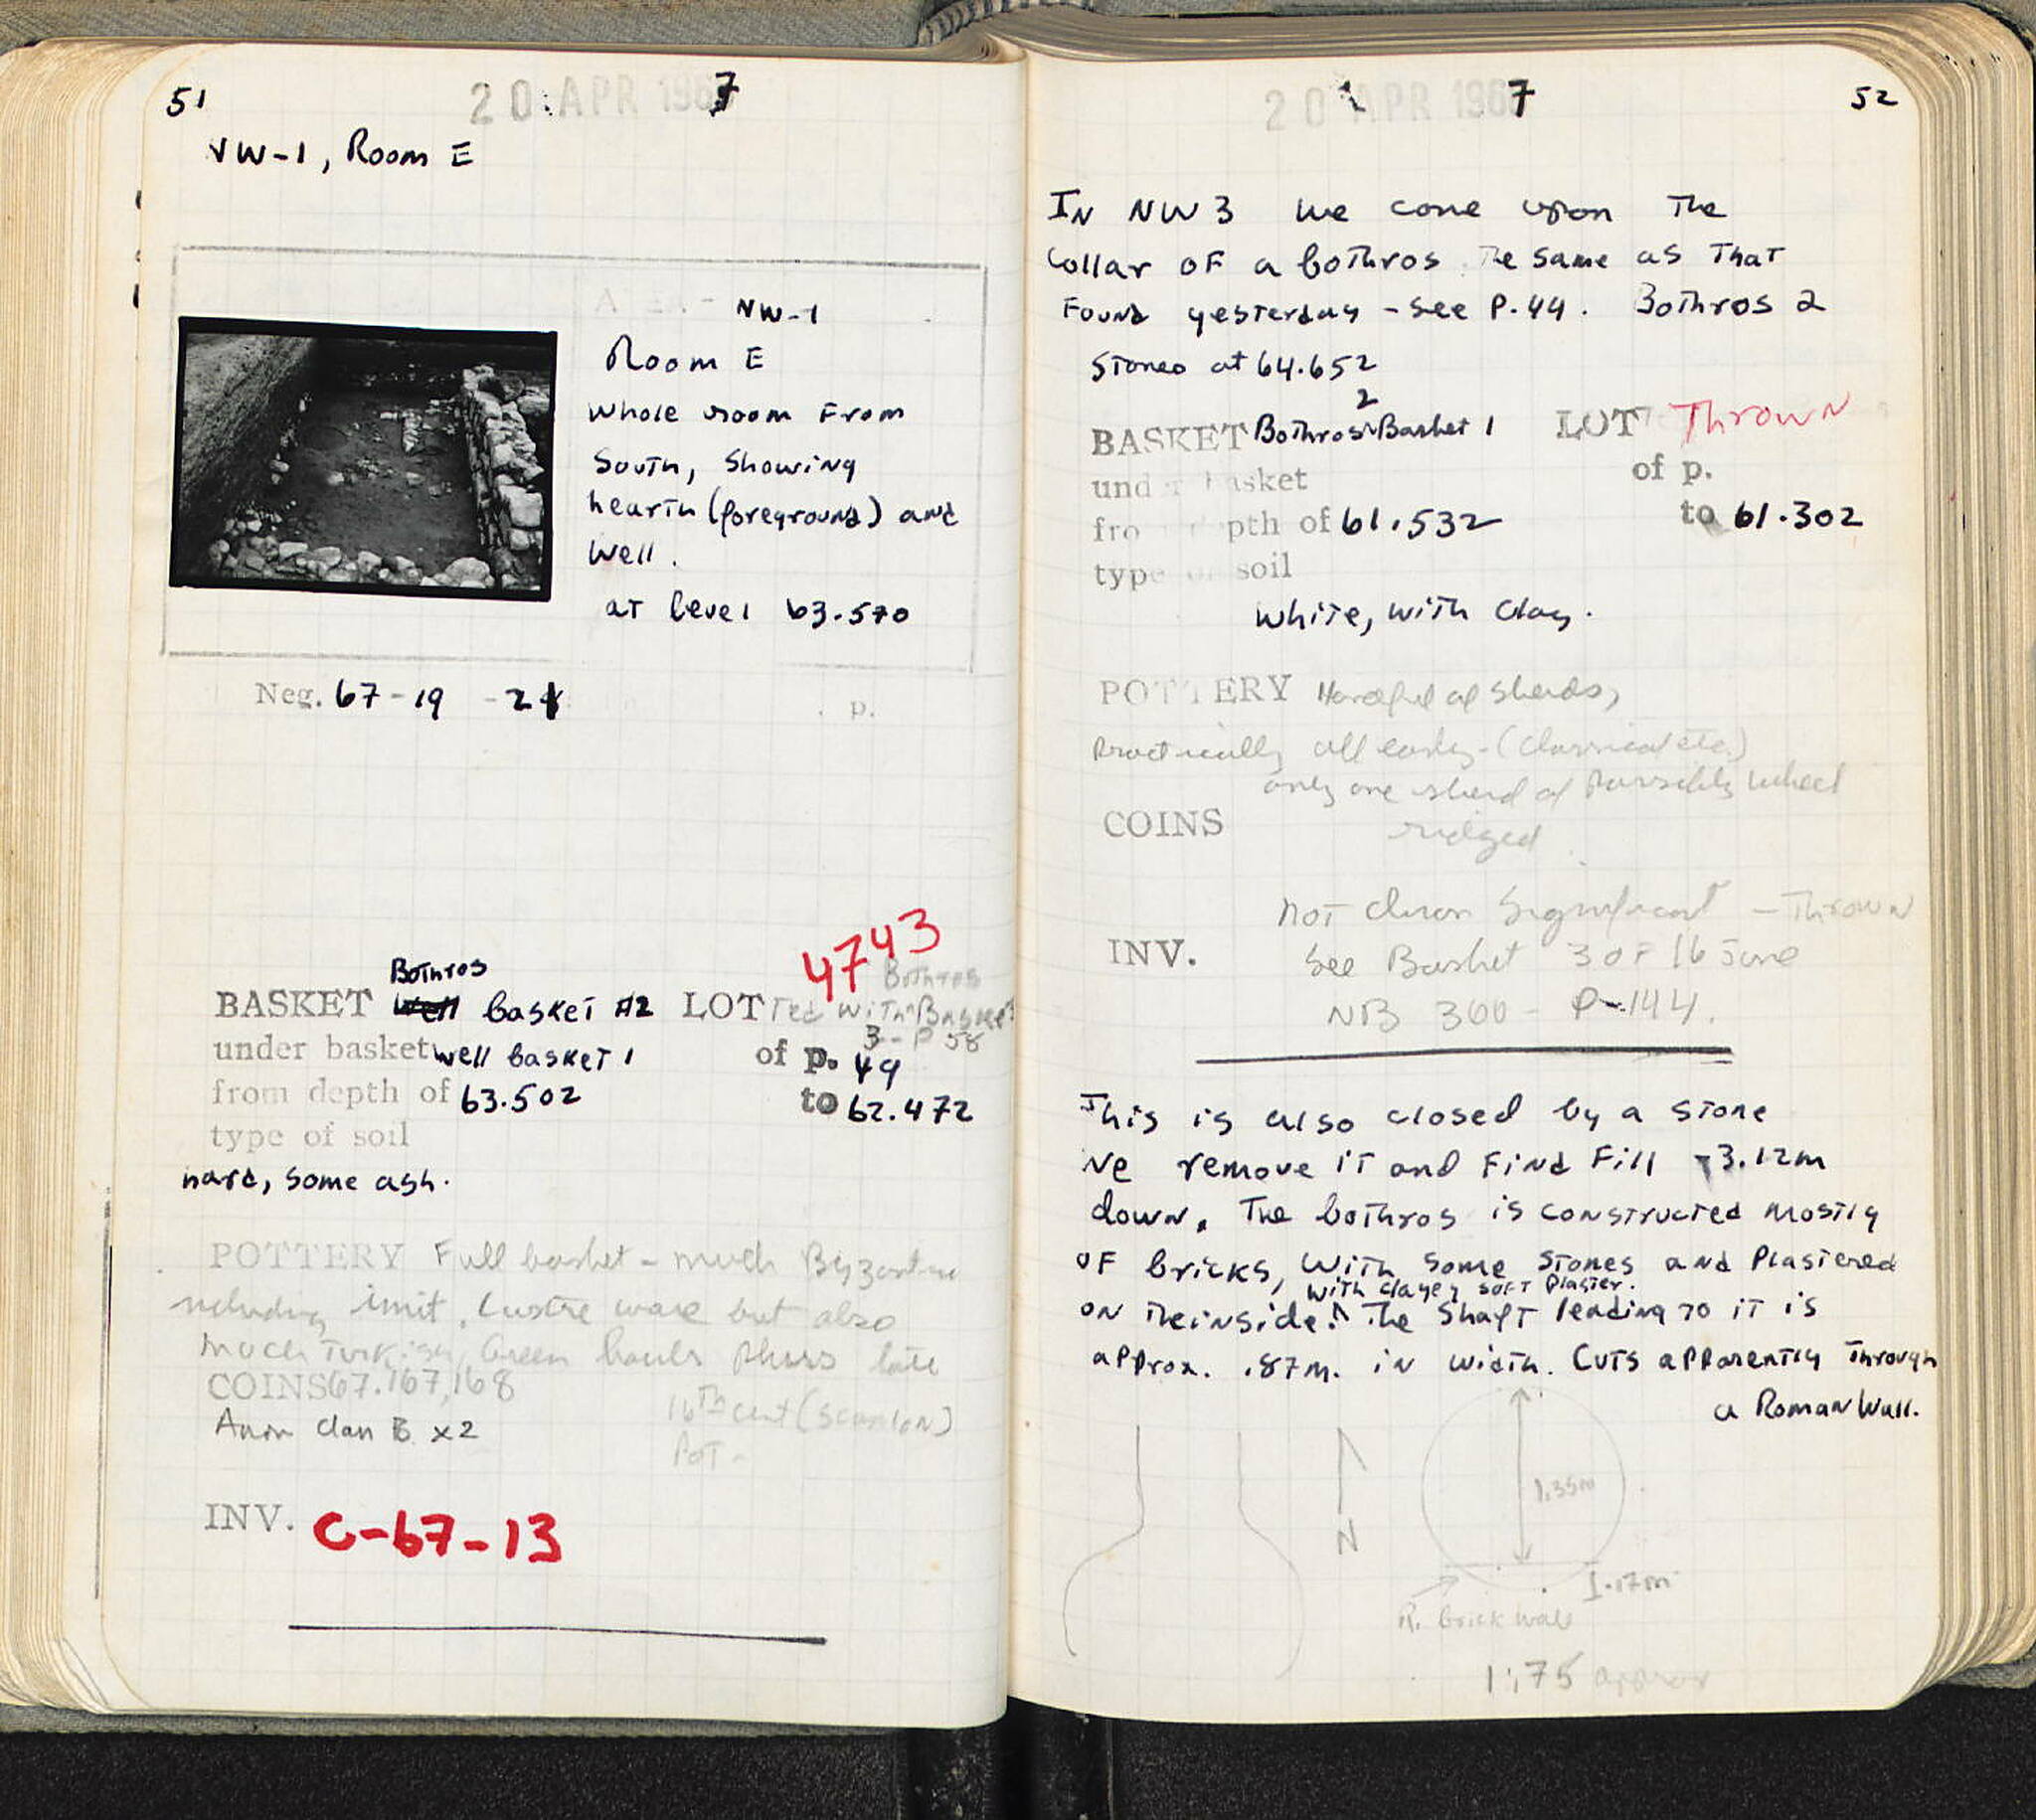 51
20 APR 1967
NW-1, Room E
NW-1
Room E
whole room From
South, Showing
hearth (foreground) and
Well.
at level 63.570
Neg. 67-19 -21
p.
4743
Bothros
BASKET Well basket #2 LOT Ted with Bothros Basket
3 - P 58
under basket well basket 1 of p. 49
from depth of 63.502 to 62.472
type of soil
hard, some ash.
POTTERY Full basket - much Byzantine
including imit. Lustre ware but also
much Turkish, Green bowls late
COINS 67.167,168
16th cent (Scanlon)
Anon Class B x2
Pot -
INV. C-67-13
20 APR 1967
52
In NW 3 we come upon The
collar of a bothros The same as That
Found yesterday - see P.44. Bothros 2
Stones at 64.652
BASKET Bothros 2 Basket 1 LOT Thrown
under basket of p.
from depth of 61.532 to 61.302
type of soil
white, with clay.
POTTERY Handful of sherds,
practically all early - (Classical etc.)
only one sherd of possibly wheel
COINS ridged
Not chron Significant - Thrown
INV. See Basket 3 of 16 June
NB 300 - P-144.
This is also closed by a stone
We remove it and Find Fill 3.12m
down. The bothros is constructed mostly
of bricks, with some stones and Plastered
with clayey soft plaster.
on the inside. The Shaft leading to it is
approx. .87m. in width. Cuts apparently Through
a Roman Wall.
1.35m
N
I.17m
R. brick wall
1.75 approx